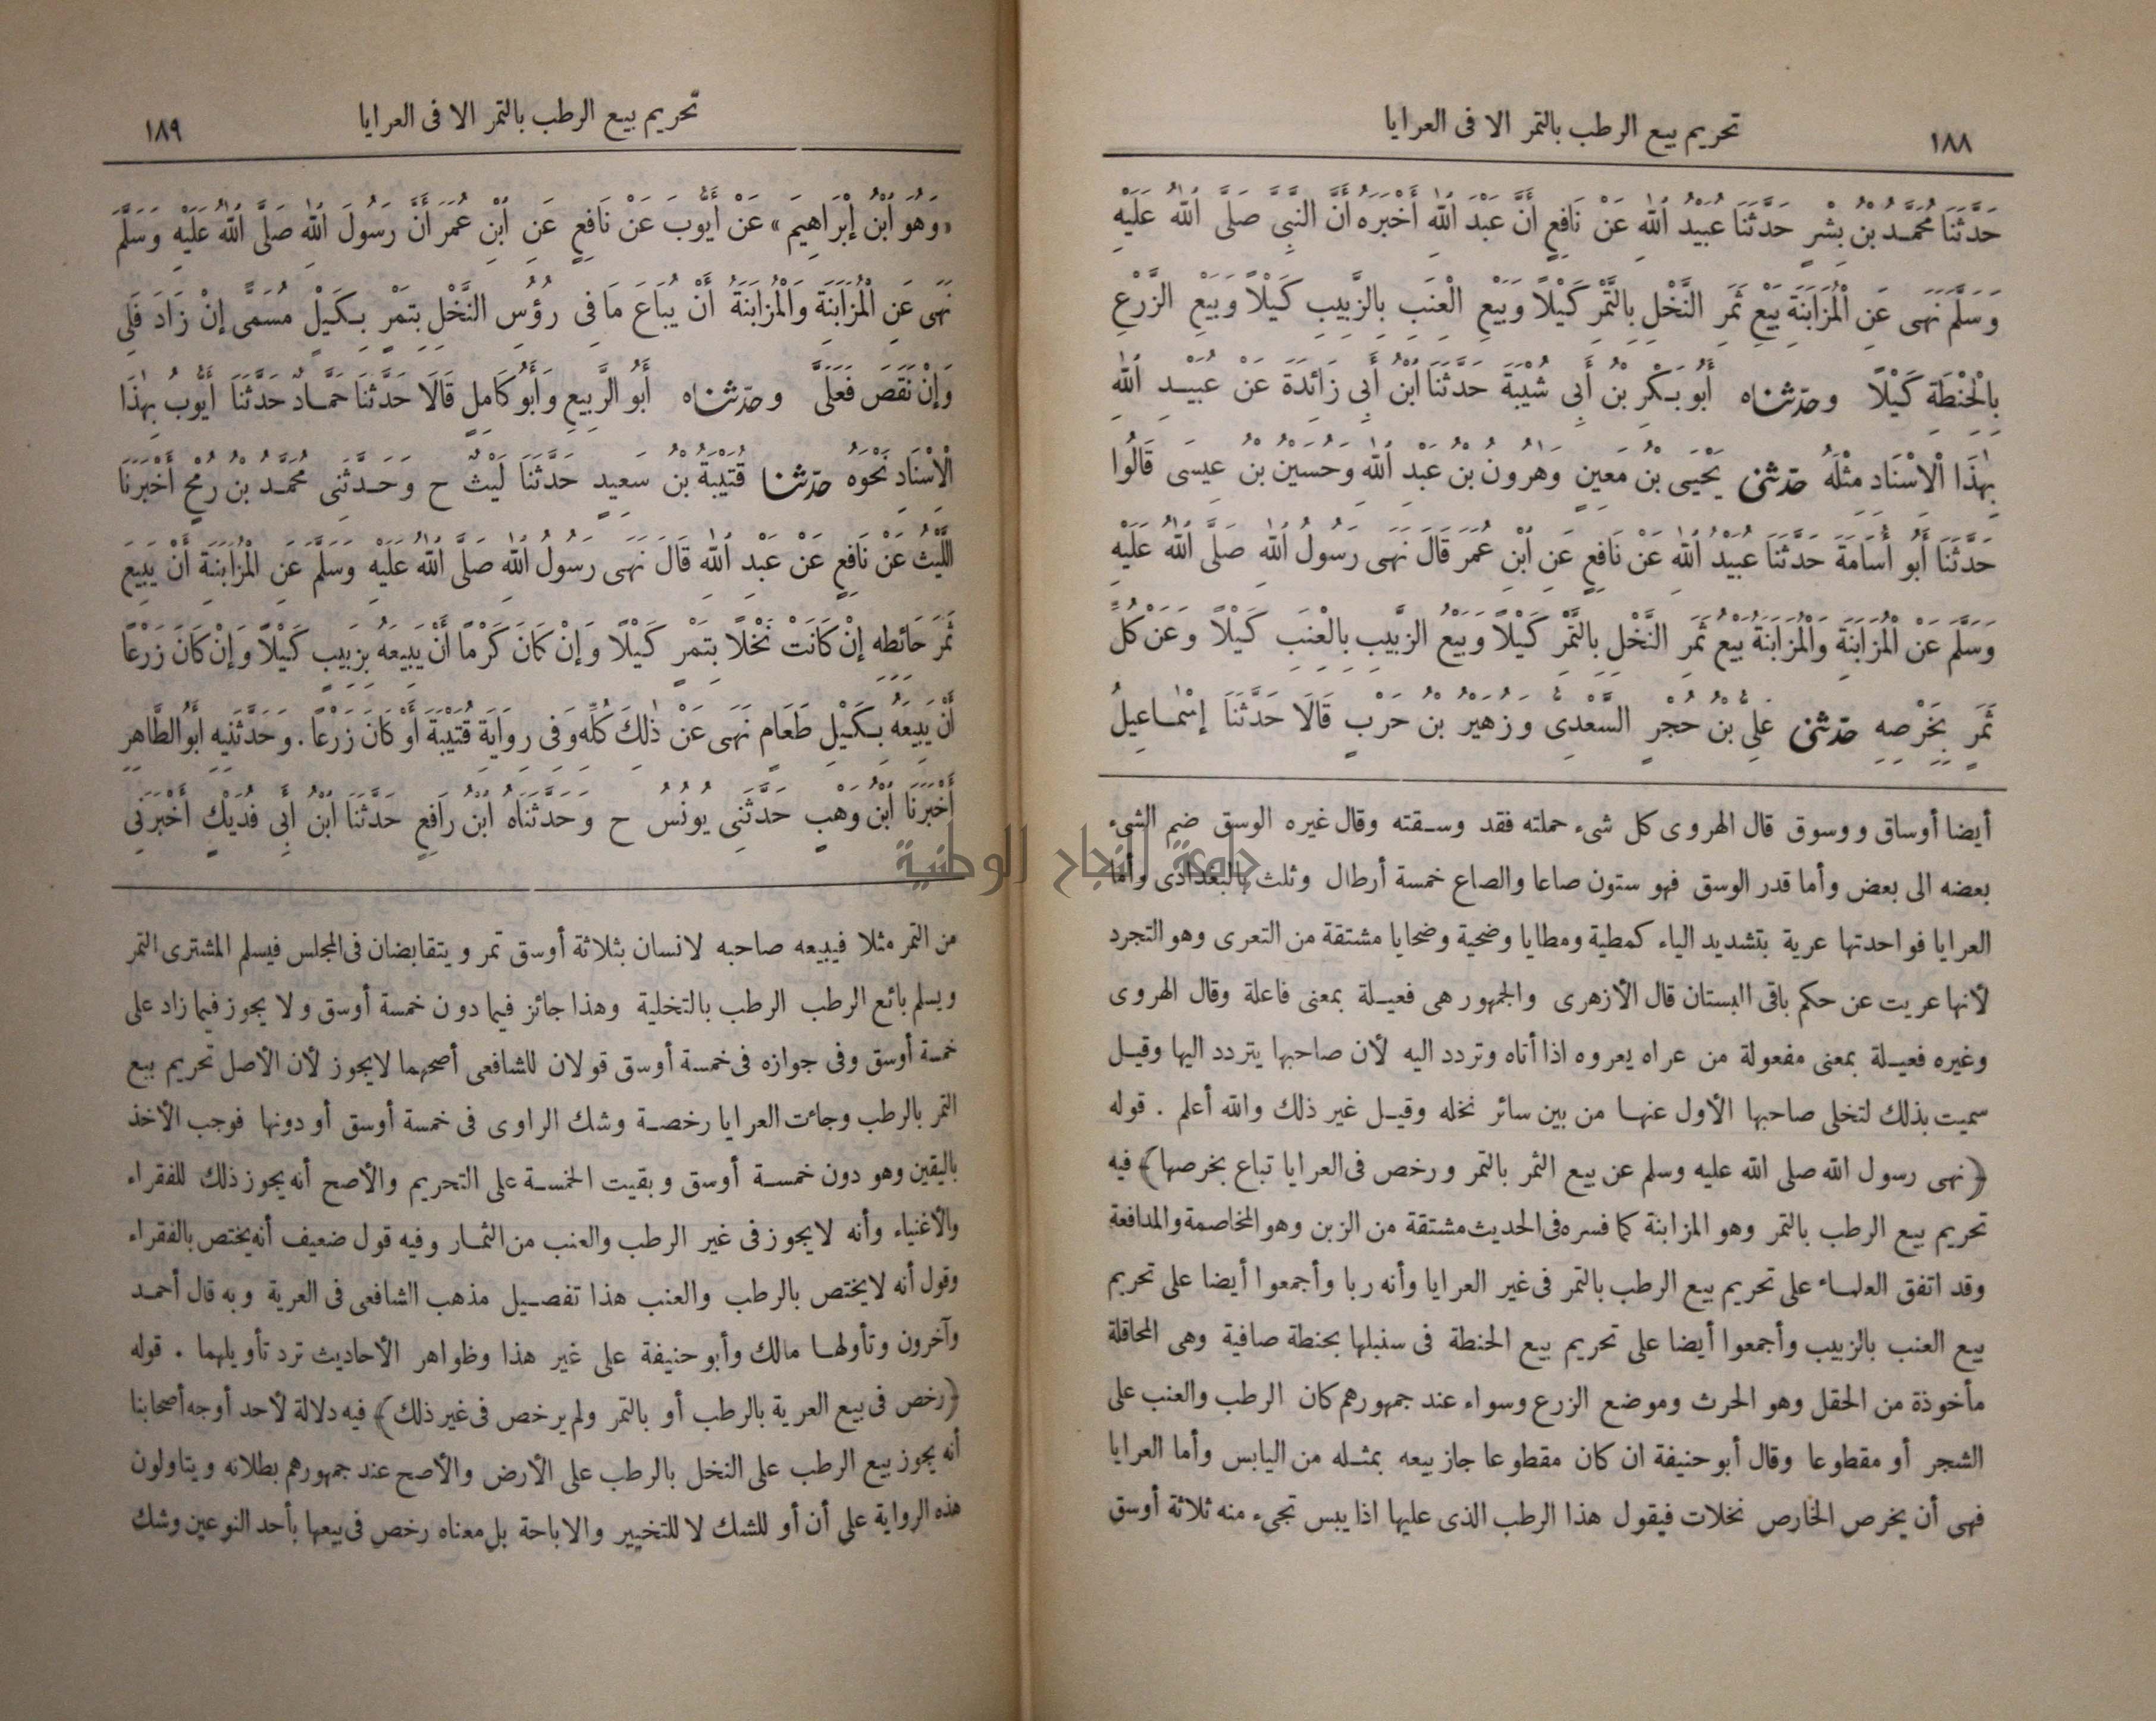 ١٨٨
تحريم بيع الرطب بالتمر الا فى العرايا
حَدَّثَنَا مُحَمَّدُ بْنُ بِشْرٍ حَدَّثَنَا عُبَيْدُ اللّٰهِ عَنْ نَافِعٍ أَنَّ عَبْدَ اللّٰهِ أَخْبَرَهُ أَنَّ النَّبِىَّ صَلَّى اللّٰهُ عَلَيْهِ
وَسَلَّمَ نَهَى عَنِ الْمُزَابَنَةِ بَيْعِ ثَمَرِ النَّخْلِ بِالتَّمْرِ كَيْلاً وَبَيْعِ الْعِنَبِ بِالزَّبِيبِ كَيْلاً وَبَيْعِ الزَّرْعِ
بِالْحِنْطَةِ كَيْلاً وحدثناه أَبُو بَكْرِ بْنُ أَبِى شَيْبَةَ حَدَّثَنَا ابْنُ أَبِى زَائِدَةَ عَنْ عُبَيْدِ اللّٰهِ
بِهٰذَا الْإِسْنَادِ مِثْلَهُ حدثنى يَحْيَى بْنُ مَعِينٍ وَهٰرُونُ بْنُ عَبْدِ اللّٰهِ وَحُسَيْنُ بْنُ عِيسَى قَالُوا
حَدَّثَنَا أَبُو أُسَامَةَ حَدَّثَنَا عُبَيْدُ اللّٰهِ عَنْ نَافِعٍ عَنِ ابْنِ عُمَرَ قَالَ نَهَى رَسُولُ اللّٰهِ صَلَّى اللّٰهُ عَلَيْهِ
وَسَلَّمَ عَنْ الْمُزَابَنَةِ وَالْمُزَابَنَةُ بَيْعُ ثَمَرِ النَّخْلِ بِالتَّمْرِ كَيْلاً وَبَيْعُ الزَّبِيبِ بِالْعِنَبِ كَيْلاً وَعَنْ كُلِّ
ثَمَرٍ بِخَرْصِهِ حدثنى عَلِىُّ بْنُ حُجْرٍ السَّعْدِىُّ وَزُهَيْرُ بْنُ حَرْبٍ قَالَا حَدَّثَنَا إِسْمَاعِيلُ
أيضا أوساق ووسوق قال الهروى كل شىء حملته فقد وسقته وقال غيره الوسق ضم الشىء
بعضه الى بعض وأما قدر الوسق فهو ستون صاعا والصاع خمسة أرطال وثلث بالبغدادى وأما
العرايا فواحدتها عرية بتشديد الياء كمطية ومطايا وضحية وضحايا مشتقة من التعرى وهو التجرد
لأنها عريت عن حكم باقى البستان قال الأزهرى والجمهور هى فعيلة بمعنى فاعلة وقال الهروى
وغيره فعيلة بمعنى مفعولة من عراه يعروه اذا أتاه وتردد اليه لأن صاحبها يتردد اليها وقيل
سميت بذلك لتخلى صاحبها الأول عنها من بين سائر نخله وقيل غير ذلك والله أعلم . قوله
﴿نهى رسول الله صلى الله عليه وسلم عن بيع الثمر بالتمر ورخص فى العرايا تباع بخرصها﴾ فيه
تحريم بيع الرطب بالتمر وهو المزابنة كما فسره فى الحديث مشتقة من الزبن وهو المخاصمة والمدافعة
وقد اتفق العلماء على تحريم بيع الرطب بالتمر فى غير العرايا وأنه ربا وأجمعوا أيضا على تحريم
بيع العنب بالزبيب وأجمعوا أيضا على تحريم بيع الحنطة فى سنبلها بحنطة صافية وهى المحاقلة
مأخوذة من الحقل وهو الحرث وموضع الزرع وسواء عند جمهورهم كان الرطب والعنب على
الشجر أو مقطوعا وقال أبو حنيفة ان كان مقطوعا جاز بيعه بمثله من اليابس وأما العرايا
فهى أن يخرص الخارص نخلات فيقول هذا الرطب الذى عليها اذا يبس تجىء منه ثلاثة أوسق
تحريم بيع الرطب بالتمر الا فى العرايا
١٨٩
«وَهُوَ ابْنُ إِبْرَاهِيمَ» عَنْ أَيُّوبَ عَنْ نَافِعٍ عَنِ ابْنِ عُمَرَ أَنَّ رَسُولَ اللّٰهِ صَلَّى اللّٰهُ عَلَيْهِ وَسَلَّمَ
نَهَى عَنِ الْمُزَابَنَةِ وَالْمُزَابَنَةُ أَنْ يُبَاعَ مَا فِى رُؤُسِ النَّخْلِ بِتَمْرٍ بِكَيْلٍ مُسَمًّى إِنْ زَادَ فَلِى
وَإِنْ نَقَصَ فَعَلَىَّ وحدثناه أَبُو الرَّبِيعِ وَأَبُو كَامِلٍ قَالَا حَدَّثَنَا حَمَّادٌ حَدَّثَنَا أَيُّوبُ بِهٰذَا
الْإِسْنَادِ نَحْوَهُ حدثنا قُتَيْبَةُ بْنُ سَعِيدٍ حَدَّثَنَا لَيْثٌ ح وَحَدَّثَنِى مُحَمَّدُ بْنُ رُمْحٍ أَخْبَرَنَا
اللَّيْثُ عَنْ نَافِعٍ عَنْ عَبْدِ اللّٰهِ قَالَ نَهَى رَسُولُ اللّٰهِ صَلَّى اللّٰهُ عَلَيْهِ وَسَلَّمَ عَنِ الْمُزَابَنَةِ أَنْ يَبِيعَ
ثَمَرَ حَائِطِهِ إِنْ كَانَتْ نَخْلاً بِتَمْرٍ كَيْلاً وَإِنْ كَانَ كَرْمًا أَنْ يَبِيعَهُ بِزَبِيبٍ كَيْلاً وَإِنْ كَانَ زَرْعًا
أَنْ يَبِيعَهُ بِكَيْلِ طَعَامٍ نَهَى عَنْ ذٰلِكَ كُلِّهِ وَفِى رِوَايَةِ قُتَيْبَةَ أَوْ كَانَ زَرْعًا . وَحَدَّثَنِيهِ أَبُو الطَّاهِرِ
أَخْبَرَنَا ابْنُ وَهْبٍ حَدَّثَنِى يُونُسُ ح وَحَدَّثَنَاهُ ابْنُ رَافِعٍ حَدَّثَنَا ابْنُ أَبِى فُدَيْكٍ أَخْبَرَنِى
من التمر مثلا فيبيعه صاحبه لانسان بثلاثة أوسق تمر ويتقابضان فى المجلس فيسلم المشترى التمر
ويسلم بائع الرطب الرطب بالتخلية وهذا جائز فيما دون خمسة أوسق ولا يجوز فيما زاد على
خمسة أوسق وفى جوازه فى خمسة أوسق قولان للشافعى أصحهما لايجوز لأن الأصل تحريم بيع
التمر بالرطب وجاءت العرايا رخصة وشك الراوى فى خمسة أوسق أو دونها فوجب الأخذ
باليقين وهو دون خمسة أوسق وبقيت الخمسة على التحريم والأصح أنه يجوز ذلك للفقراء
والأغنياء وأنه لايجوز فى غير الرطب والعنب من الثمار وفيه قول ضعيف أنه يختص بالفقراء
وقول أنه لايختص بالرطب والعنب هذا تفصيل مذهب الشافعى فى العرية وبه قال أحمد
وآخرون وتأولها مالك وأبو حنيفة على غير هذا وظواهر الأحاديث ترد تأويلهما . قوله
﴿رخص فى بيع العرية بالرطب أو بالتمر ولم يرخص فى غير ذلك﴾ فيه دلالة لأحد أوجه أصحابنا
أنه يجوز بيع الرطب على النخل بالرطب على الأرض والأصح عند جمهورهم بطلانه ويتاولون
هذه الرواية على أن أو للشك لا للتخيير والاباحة بل معناه رخص فى بيعها بأحد النوعين وشك
جامعة النجاح الوطنية